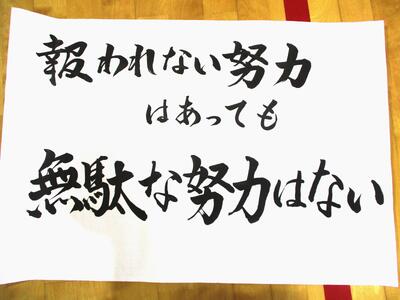 報われない努力
はあっても
無駄な努力はない